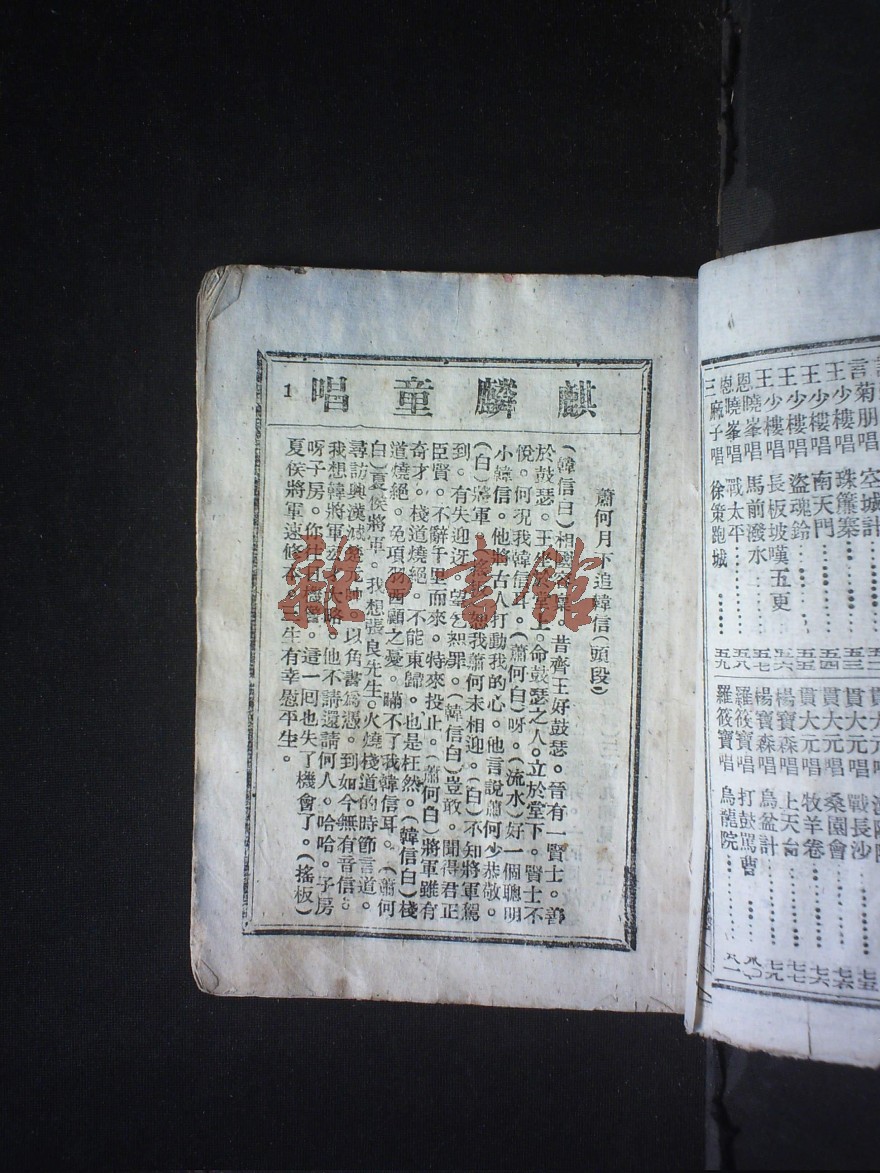 麒麟童唱
1
蕭何月下追韓信(頭段)
(韓信白)相國 昔齊王好鼓瑟。晉有一賢士。善
於鼓瑟。王 命鼓瑟之人。立於堂下。賢士不
悅。何况我韓信耳。(蕭何白)呀。(流水)好一個聰明
小韓信。他將古人打動我的心。他言說蕭何少恭敬。
(白)將軍 恕我蕭何未相迎。(白)不知將軍駕
到。有失迎迓。望乞恕罪。(韓信白)豈敢。聞得君正
臣賢。不辭千里而來。特來投止。(蕭何白)將軍雖有
奇才。棧道燒絕。不能東歸。也是枉然。(韓信白)棧
道燒絕。免項羽西顧之憂。瞞不了我韓信耳。(蕭何
白)夏侯將軍。我想張良先生。火燒棧道的時節言道。
尋訪興漢滅楚元帥。以角書爲憑。到如今無有音信。
我想韓將軍 大略。他不請還請何人。哈哈。子房
呀子房。你 這一回也失了機會了。(搖板)
夏侯將軍速修 三生有幸慰平生。
雜·書館
言菊朋唱 空城計
王少樓唱 珠簾寨
王少樓唱 南天門……五四
王少樓唱 盜魂鈴……五五
王少樓唱 長板坡嘆五更 五六
恩曉峯唱 馬前潑水……五七
恩曉峯唱 戰太平……五八
三麻子唱 徐策跑城……五九
貫大元唱 戰長沙
貫大元唱 桑園會……七六
貫大元唱 牧羊卷……七七
楊寶森唱 上天台……七七
楊寶森唱 烏盆計……七九
羅筱寶唱 打鼓罵曹
羅筱寶唱 烏龍院……八一